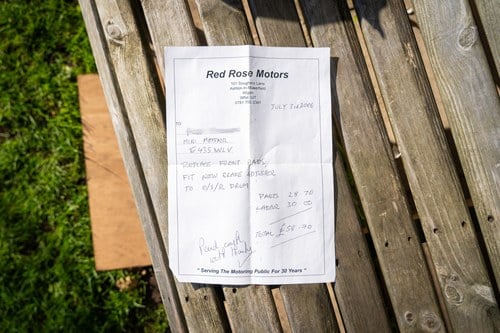 Red Rose Motors
Ashton-in-Makerfield
Wigan
JULY 3rd 2006
TO
MINI MAYFAIR
E 435 WLV
REPLACE FRONT PADS,
FIT NEW BRAKE ADJUSTER
TO O/S/R DRUM
PARTS 28 70
LABOUR 30 00
TOTAL £58-70
Paid cash
with thanks
" Serving The Motoring Public For 30 Years "